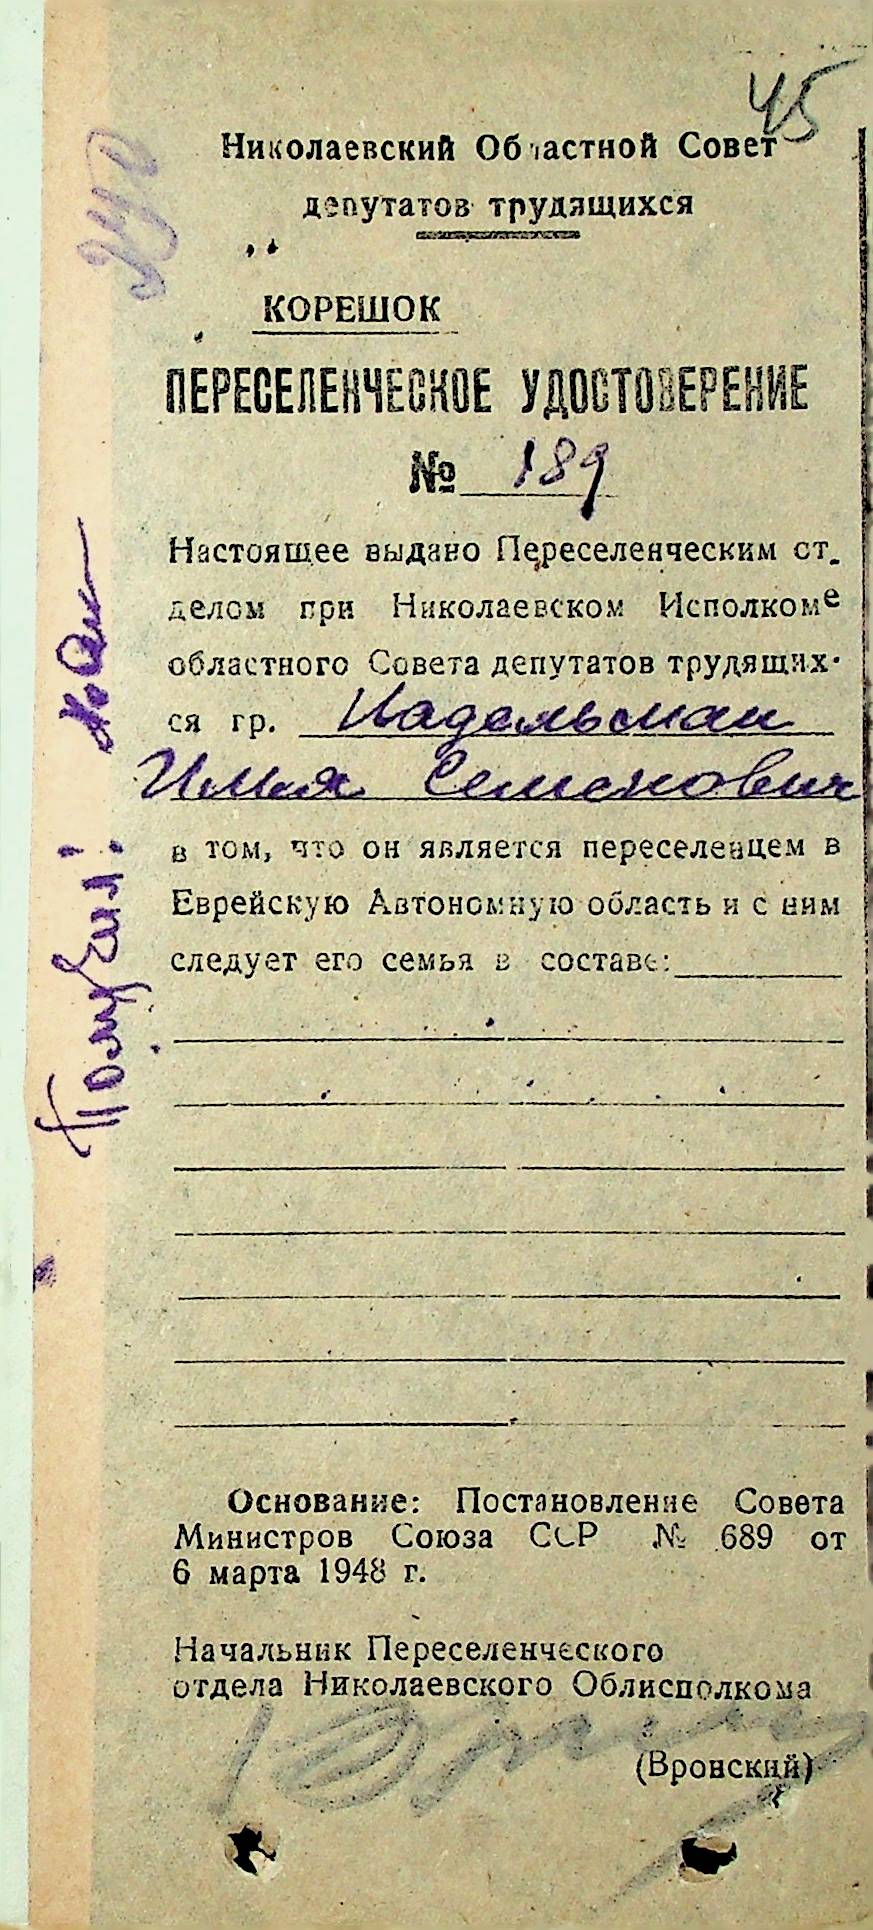 45
Николаевский Областной Совет
депутатов трудящихся
КОРЕШОК
ПЕРЕСЕЛЕНЧЕСКОЕ УДОСТОВЕРЕНИЕ
№ 189
Настоящее выдано Переселенческим от.
делом при Николаевском Исполкоме
областного Совета депутатов трудящих-
ся гр. Надельман
Илья Семенович
в том, что он является переселенцем в
Еврейскую Автономную область и с ним
следует его семья в составе:
Основание: Постановление Совета
Министров Союза ССР № 689 от
6 марта 1948 г.
Начальник Переселенческого
отдела Николаевского Облисполкома
(Вронский)
Получил: